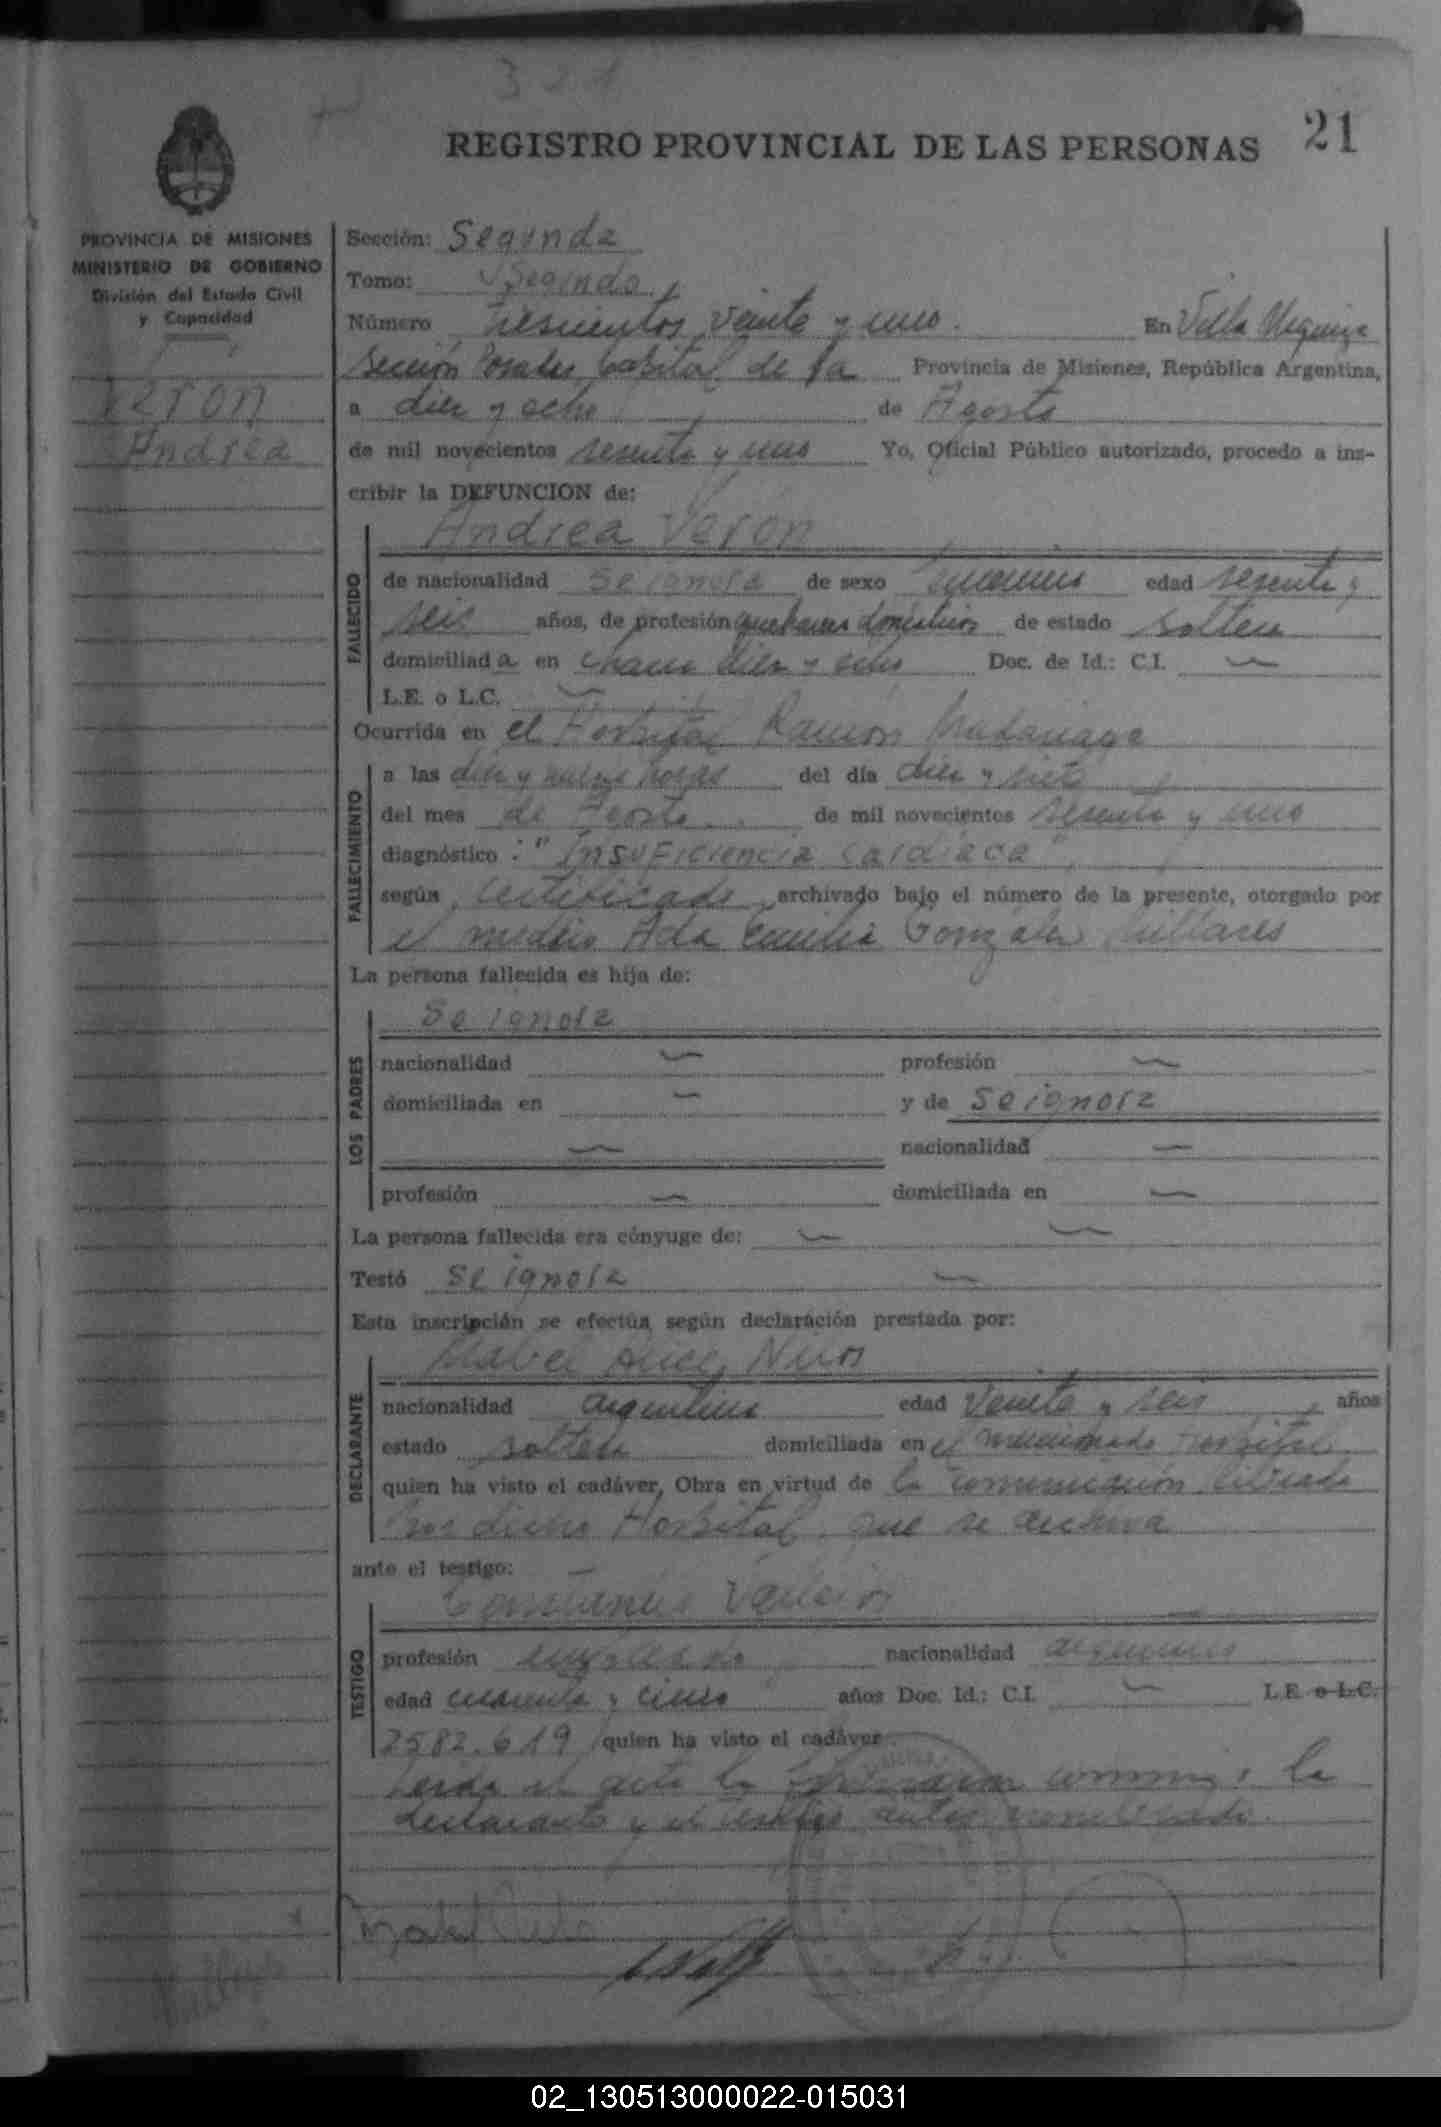 321
REGISTRO PROVINCIAL DE LAS PERSONAS 21
PROVINCIA DE MISIONES
MINISTERIO DE GOBIERNO
División del Estado Civil
y Capacidad
Veron
Andrea
Sección: Segunda
Tomo: Segundo
Número Trescientos veinte y uno. En Villa Urquiza
Sección Posadas Capital de la Provincia de Misiones, República Argentina,
a diez y ocho de Agosto
de mil novecientos sesenta y uno Yo, Oficial Público autorizado, procedo a ins-
cribir la DEFUNCION de:
Andrea Veron
FALLECIDO
de nacionalidad Se ignora de sexo femenino edad sesenta y
seis años, de profesión quehaceres domésticos de estado soltera
domiciliada en Chacra diez y ocho Doc. de Id.: C.I.
L.E. o L.C.
Ocurrida en el Hospital Ramón Madariaga
FALLECIMIENTO
a las diez y nueve horas del día diez y siete
del mes de Agosto de mil novecientos sesenta y uno
diagnóstico: "Insuficiencia cardiaca"
según Certificado archivado bajo el número de la presente, otorgado por
el médico Ada Emilia González Millares
La persona fallecida es hija de:
LOS PADRES
Se ignora
nacionalidad profesión
domiciliada en y de Se ignora
nacionalidad
profesión domiciliada en
La persona fallecida era cónyuge de:
Testó Se ignora
Esta inscripción se efectúa según declaración prestada por:
Mabel
DECLARANTE
nacionalidad argentina edad Veinte y seis, años
estado soltera domiciliada en el mencionado Hospital
quien ha visto el cadáver, Obra en virtud de la comunicación librada
por dicho Hospital, que se archiva
ante el testigo:
TESTIGO
profesión empleado nacionalidad argentino
edad cuarenta y cinco años Doc. Id.: C.I. L.E. o L.C.
2582.619 quien ha visto el cadáver
Leída el acta la conmigo la
declarante y el testigo antes nombrado.
02_130513000022-015031